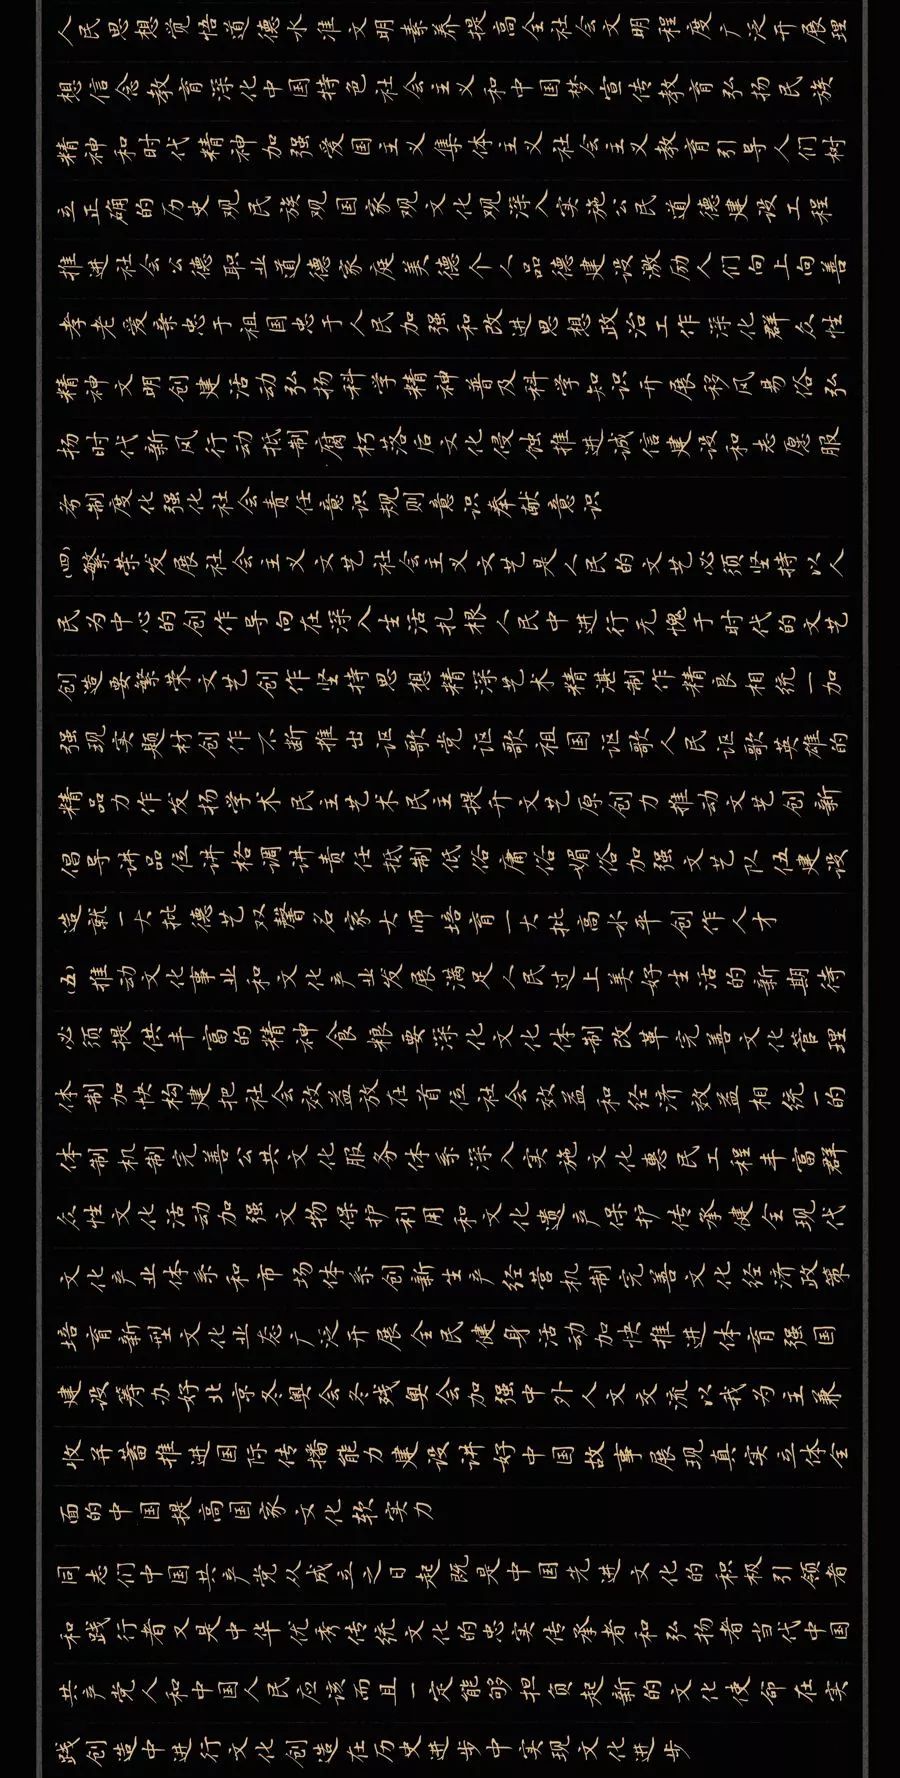 人民思想觉悟道德水准文明素养提高全社会文明程度广泛开展理
想信念教育深化中国特色社会主义和中国梦宣传教育弘扬民族
精神和时代精神加强爱国主义集体主义社会主义教育引导人们树
立正确的历史观民族观国家观文化观深入实施公民道德建设工程
推进社会公德职业道德家庭美德个人品德建设激励人们向上向善
孝老爱亲忠于祖国忠于人民加强和改进思想政治工作深化群众性
精神文明创建活动弘扬科学精神普及科学知识开展移风易俗弘
扬时代新风行动抵制腐朽落后文化侵蚀推进诚信建设和志愿服
务制度化强化社会责任意识规则意识奉献意识
(四)繁荣发展社会主义文艺社会主义文艺是人民的文艺必须坚持以人
民为中心的创作导向在深入生活扎根人民中进行无愧于时代的文艺
创造要繁荣文艺创作坚持思想精深艺术精湛制作精良相统一加
强现实题材创作不断推出讴歌党讴歌祖国讴歌人民讴歌英雄的
精品力作发扬学术民主艺术民主提升文艺原创力推动文艺创新
倡导讲品位讲格调讲责任抵制低俗庸俗媚俗加强文艺队伍建设
造就一大批德艺双馨名家大师培育一大批高水平创作人才
(五)推动文化事业和文化产业发展满足人民过上美好生活的新期待
必须提供丰富的精神食粮要深化文化体制改革完善文化管理
体制加快构建把社会效益放在首位社会效益和经济效益相统一的
体制机制完善公共文化服务体系深入实施文化惠民工程丰富群
众性文化活动加强文物保护利用和文化遗产保护传承健全现代
文化产业体系和市场体系创新生产经营机制完善文化经济政策
培育新型文化业态广泛开展全民健身活动加快推进体育强国
建设筹办好北京冬奥会冬残奥会加强中外人文交流以我为主兼
收并蓄推进国际传播能力建设讲好中国故事展现真实立体全
面的中国提高国家文化软实力
同志们中国共产党从成立之日起既是中国先进文化的积极引领者
和践行者又是中华优秀传统文化的忠实传承者和弘扬者当代中国
共产党人和中国人民应该而且一定能够担负起新的文化使命在实
践创造中进行文化创造在历史进步中实现文化进步